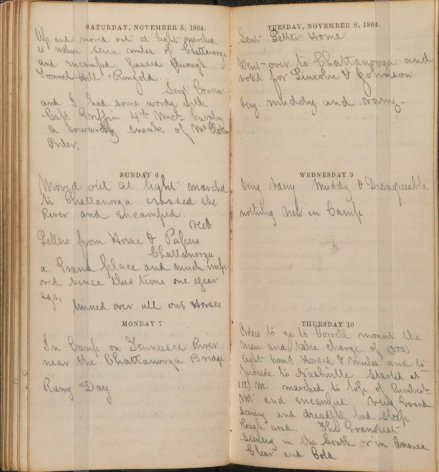 SATURDAY, NOVEMBER 5, 1864.
Up and moved out at light marched
to within seven miles of Chattanooga
and encamped. Passed through
Tunnel Hill Ringold.
Sergt Conner
and I had some words with
Capt. Griffin 4th Mich Cavalry
a cowardly sneak of Mc
order.
SUNDAY 6
Moved out at light marched
to Chattanooga crossed the
River and encamped.
recd
Letters from Home & Papers
Chattanooga
a Grand place and much imp-
oved since this time one year
ago.
turned over all our Horses
MONDAY 7
In Camp on Tennessee River
near the Chattanooga Bridge
Rany Day
TUESDAY, NOVEMBER 8, 1864.
Sent Letter Home
Went over to Chattanooga and
voted for Lincoln & Johnson
very muddy and rainy.
WEDNESDAY 9
Very rany Muddy & Disagreeable
nothing new in Camp
THURSDAY 10
Orders to go to mount the
men and take charge of (800)
eight hund Horses & Mules and to
procede to Nashville. Started at
M. marched to top of
Mt and encamped Very Grand
Senery and dreadful bad steep
Rough road. The Grandest
Seenery in the South or in America
Clear and Cold